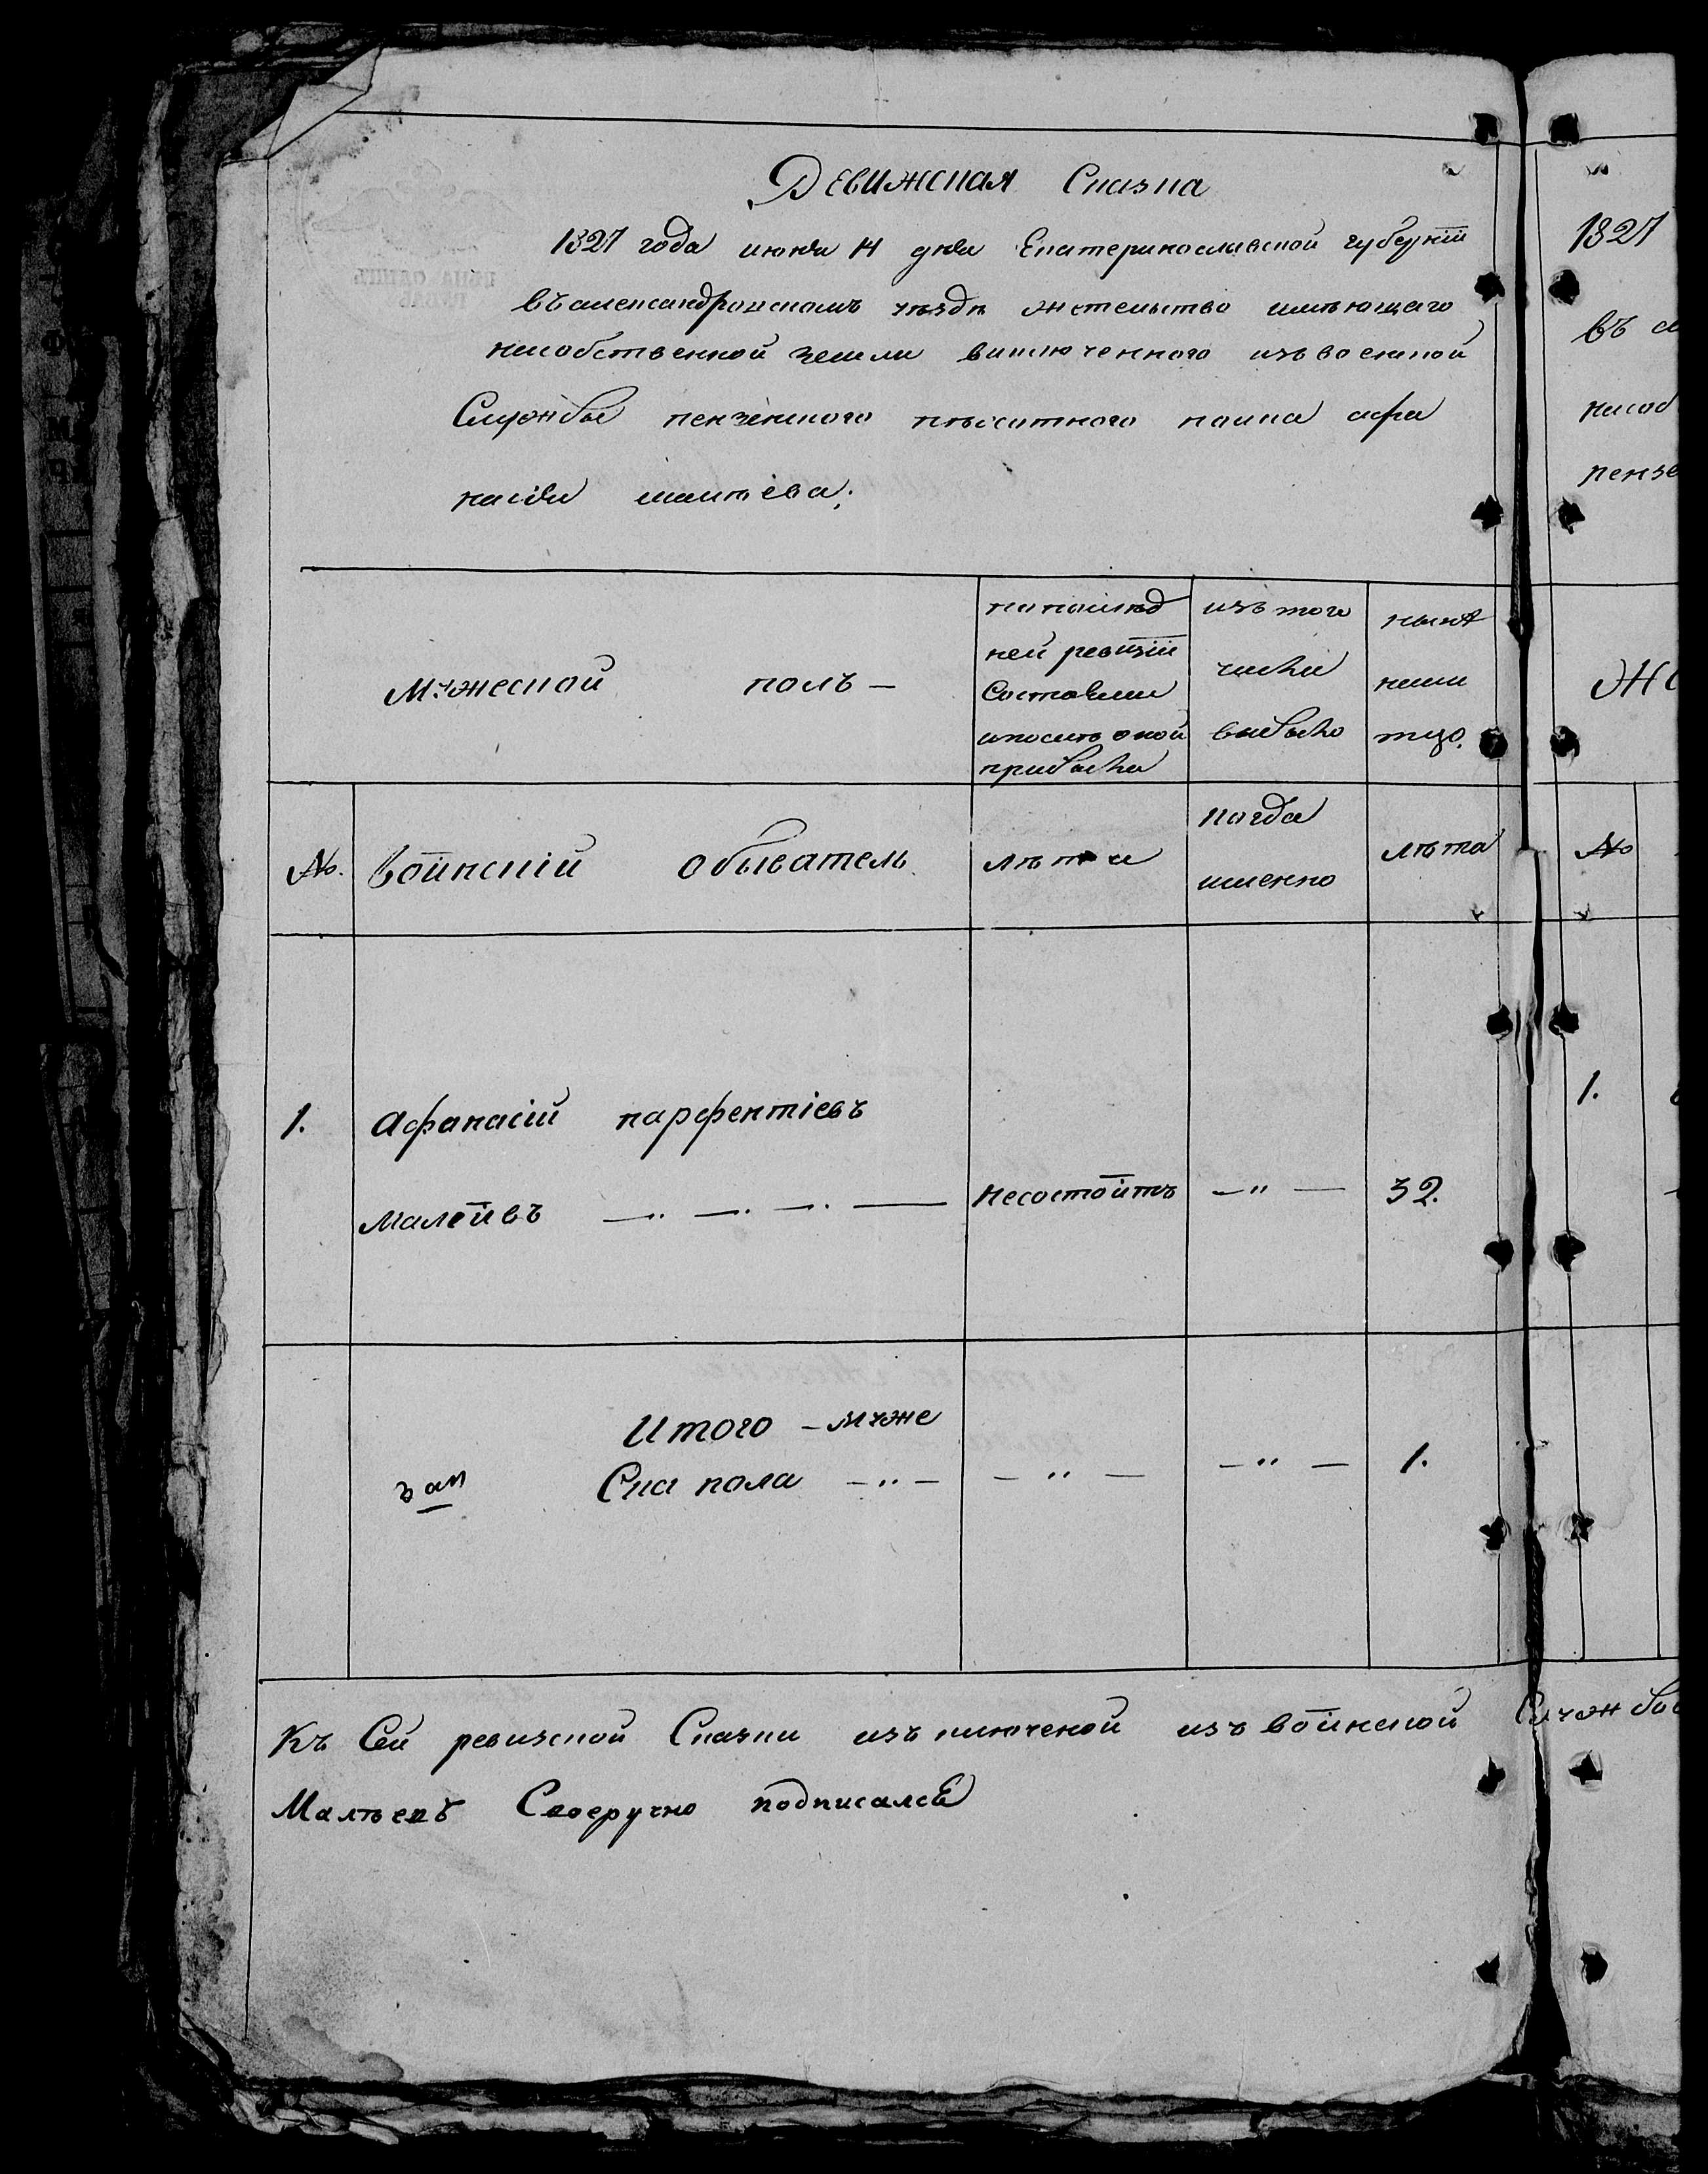 Ревижская Сказка
1827 года июня 14 дня Екатеринославской губерніи
въ александровскомъ уѣзде жетельство имѣющаго
насобственной земли виключенного изъ военной
Службы пензенского пѣхотного полка афа
насія малѣева;
Мужеской полъ —
напослѣд
ней ревизіи
Состояли
ипослѣ оной
прибыли
изъ того
числа
выбыло
нынѣ
на ли
цо.
№.
Воинскій обыватель.
лѣта
когда
именно
лѣта
1. Афанасій парфентіевъ
Малеивъ — „ — . — . — несостоитъ — „ — 32.
Итого — муже
Ска пола — „ — — „ — — „ — 1.
Къ Сей ревизской Сказки изъключеной изъ воинской Службы
Малѣевъ Своеручно подписалсЯ
1827
въ а
насоб
пензе
Же
№
1.